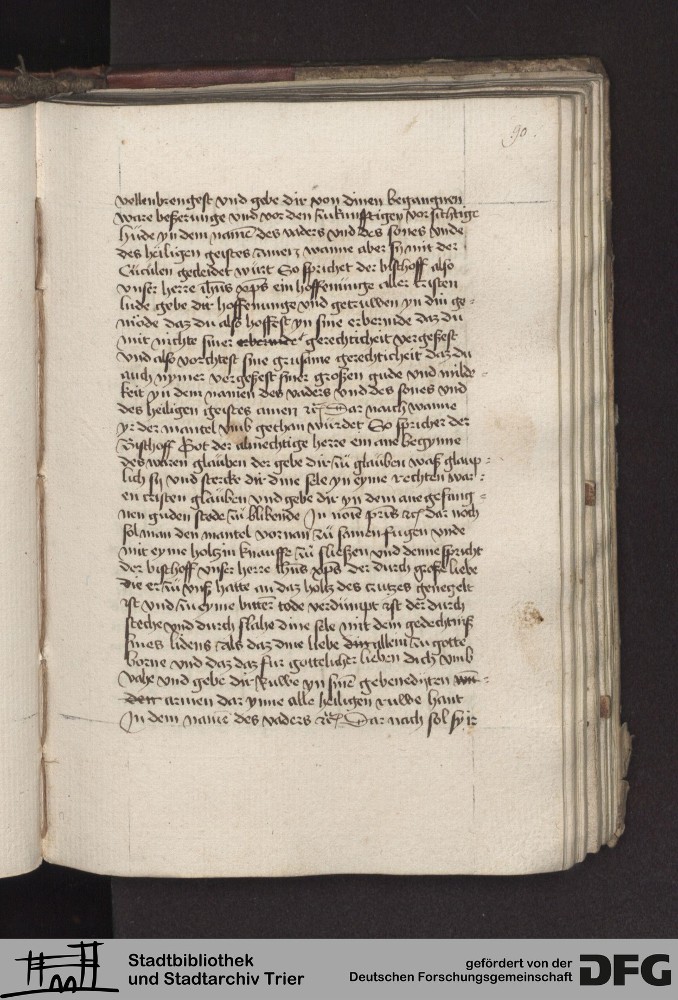 90.
vollenbrengest vnd gebe dir von dinen begangnen
ware beßerunge vnd vor den zukunfftigen vorsichtige
hude yn dem namē des vaders vnd des sones vnde
des heiligen geistes amen wanne aber sy mit der
Cucullen gecleidet wurt So sprichet der bischoff also
vnser herre ihus xps ein hoffenunge aller cristen
lude gebe dir hoffenunge vnd getruwen yn din ge-
mode daz du also hoffest yn sine erbermde daz du
mit nichte siner erbermde gerechticheit vergeßest
vnd also vorchtest sine grusame gerechticheit daz du
auch nymer vergeßest siner großen gude vnd milde-
keit yn dem namen des vaders vnd des sones vnd
des heiligen geistes amen rc Dar nach wanne
yr der mantel vmb gethan wurdet So spricher der
Bisthoff Got der almechtige herre ein ane begynne
des waren glauben der gebe dir zu glauben waß glaup-
lich sy vnd stercke dir dine sele yn eyme rechten war-
en cristen glauben vnd gebe dir yn dem ane gefang-
nen guden stede zu blibende In noīe pris rc dar noch
sol man den mantel vornan zu samen fugen vnde
mit eyme holtzin knauffe zu sließen vnd denne spricht
der bisthoff vnser herre ihus xps der durch große liebe
die er zu vnß hatte an daz holtz des crutzes genegelt
ist vnd zu eyme bittern tode verdumpt ist der durch
steche vnd durch slahe dine sele mit dem gedechtniß
sines lidens als daz dine liebe allein zu gotte
borne vnd daz daz fur gottelicher lieben dich vmb
vahe vnd gebe dir Ruwe yn sinē gebenedyten
armen dar ynne alle heiligen ruwe hant
In dem namē des vaders rc Dar nach sol sy ir
Stadtbibliothek
und Stadtarchiv Trier
gefördert von der
Deutschen Forschungsgemeinschaft
DFG